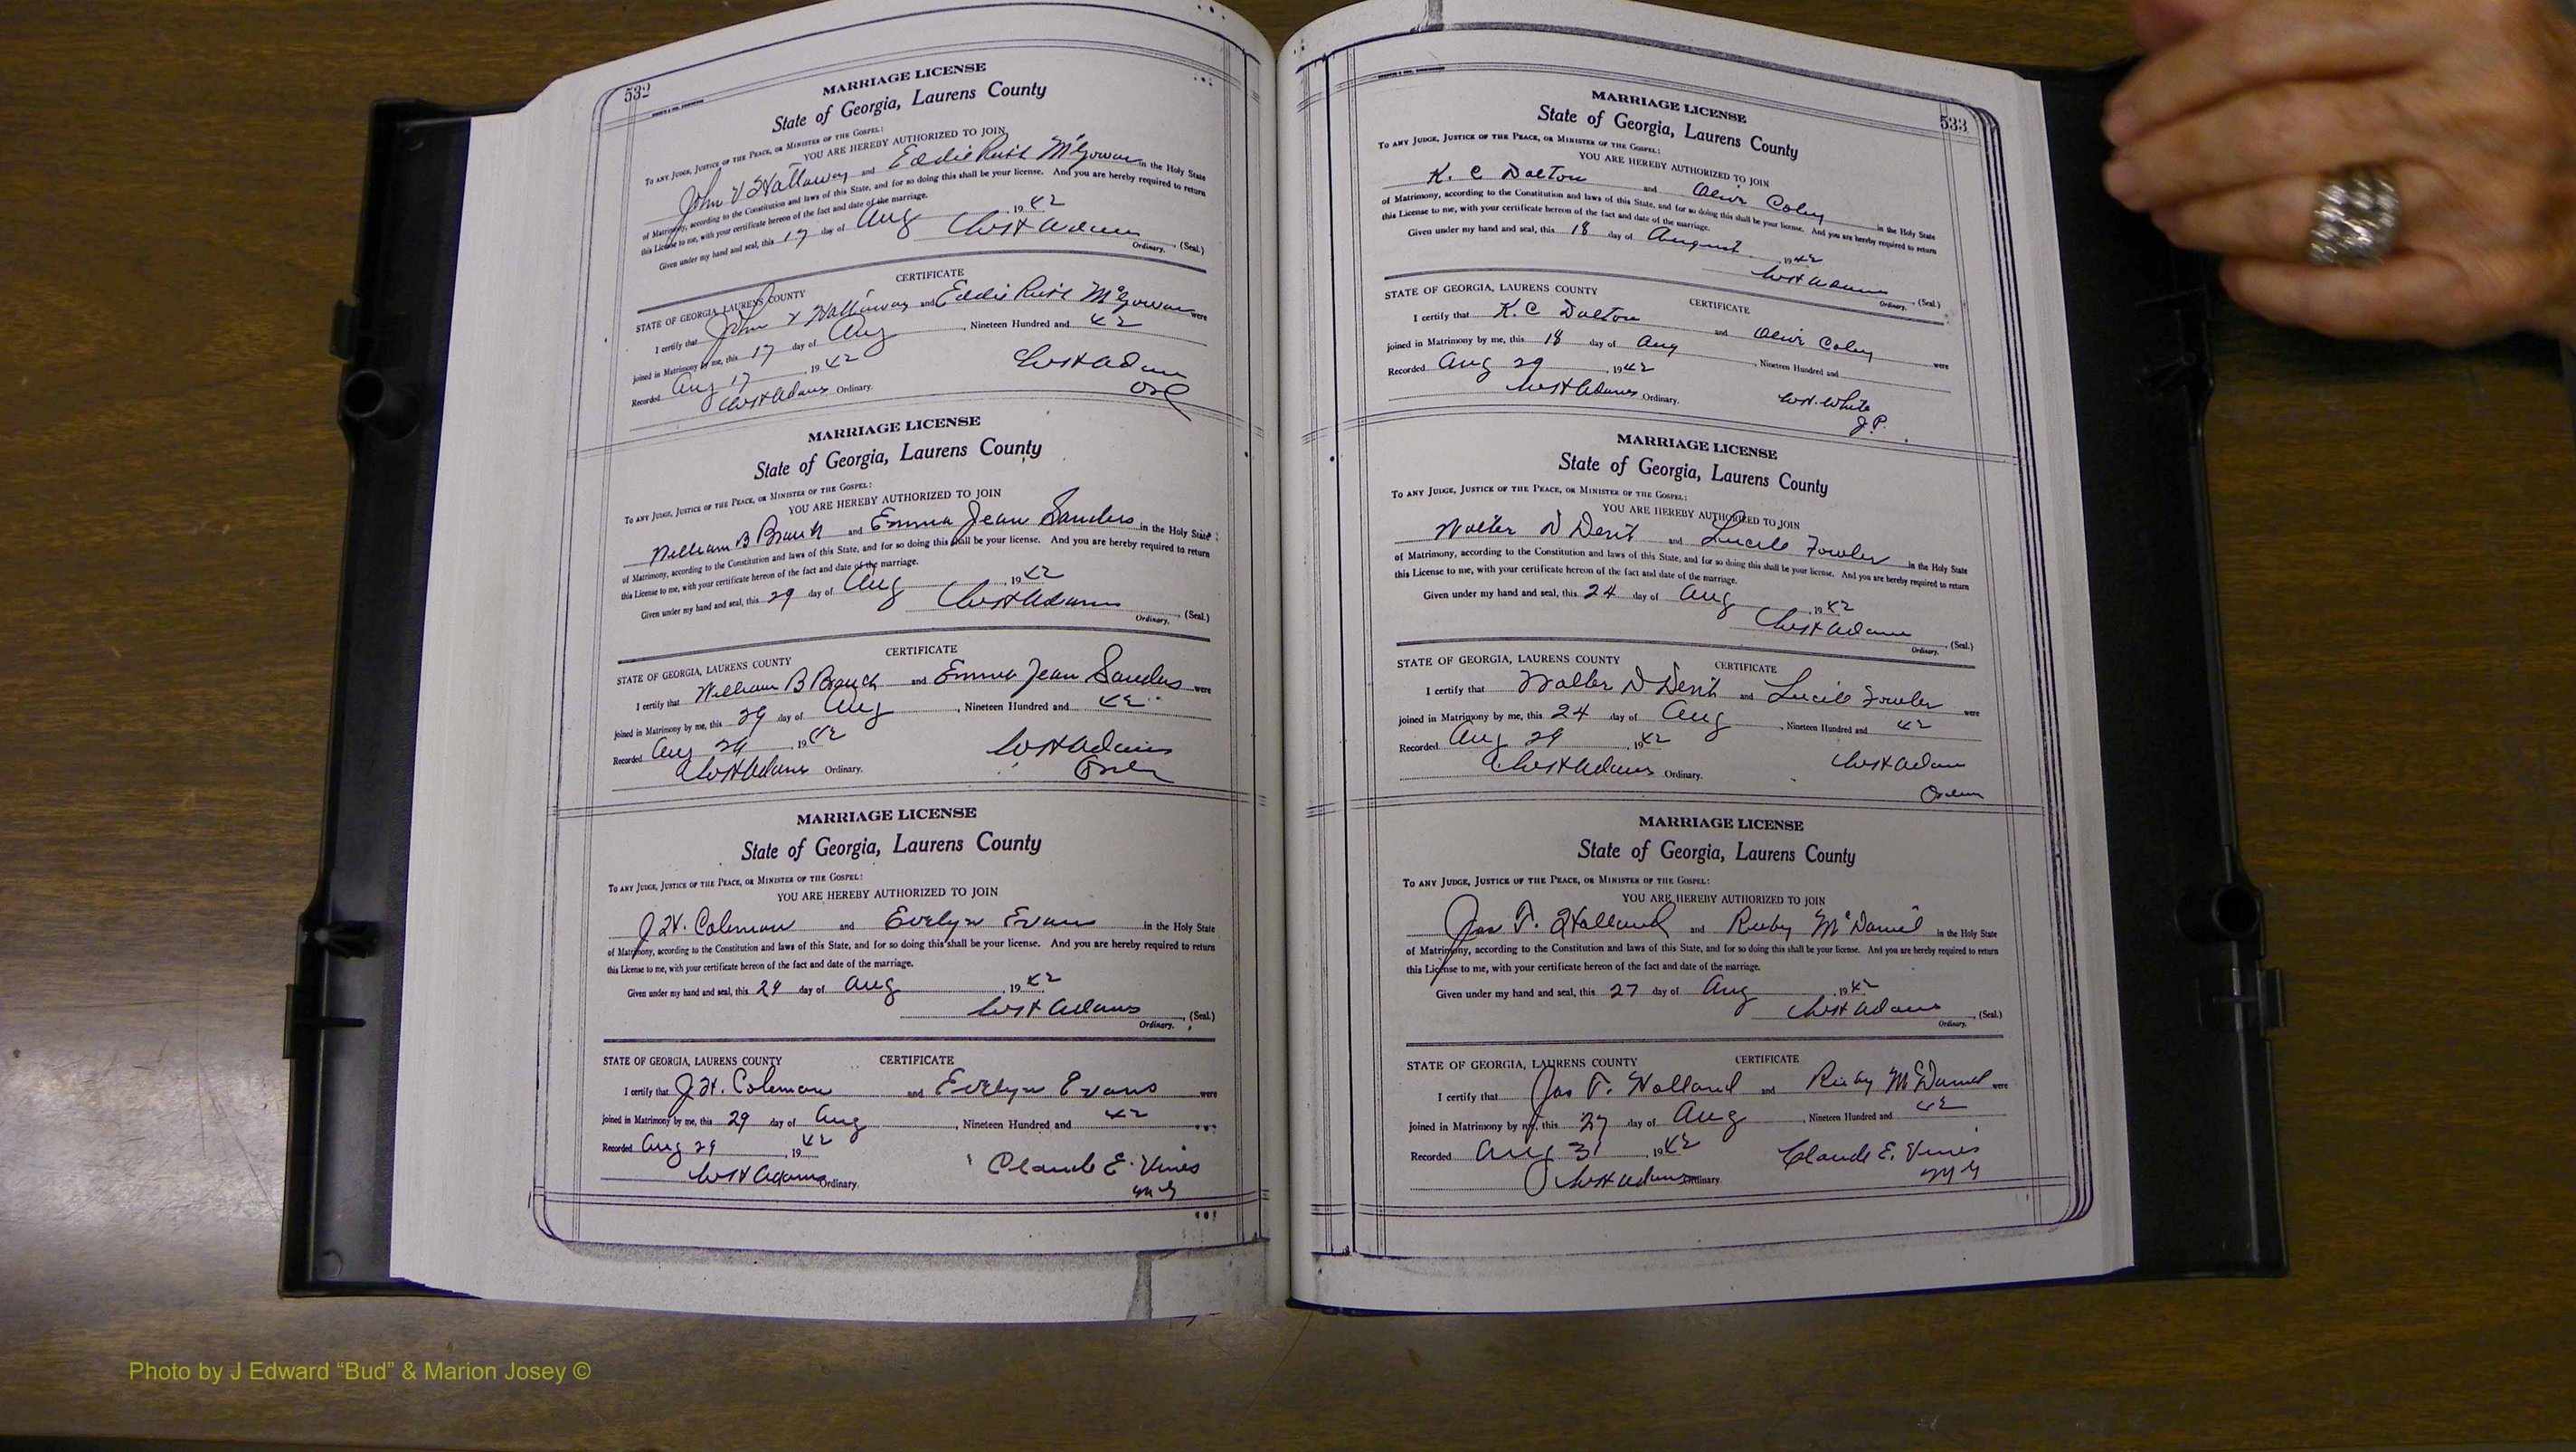 532
MARRIAGE LICENSE
State of Georgia, Laurens County
To any Judge, Justice of the Peace, or Minister of the Gospel:
YOU ARE HEREBY AUTHORIZED TO JOIN
John V Hallaway and Eddie Ruth McGowan in the Holy State
of Matrimony, according to the Constitution and laws of this State, and for so doing this shall be your license. And you are hereby required to return
this License to me, with your certificate hereon of the fact and date of the marriage.
Given under my hand and seal, this 17 day of Aug, 1942
Adams, (Seal.)
Ordinary.
CERTIFICATE
STATE OF GEORGIA, LAURENS COUNTY
I certify that John V Hallaway and Eddie Ruth McGowan were
joined in Matrimony by me, this 17 day of Aug, Nineteen Hundred and 42
Recorded Aug 17, 1942
Adams Ordinary.
MARRIAGE LICENSE
State of Georgia, Laurens County
To any Judge, Justice of the Peace, or Minister of the Gospel:
YOU ARE HEREBY AUTHORIZED TO JOIN
William B Branch and Emma Jean Sanders in the Holy State
of Matrimony, according to the Constitution and laws of this State, and for so doing this shall be your license. And you are hereby required to return
this License to me, with your certificate hereon of the fact and date of the marriage.
Given under my hand and seal, this 29 day of Aug, 1942
Adams, (Seal.)
Ordinary.
CERTIFICATE
STATE OF GEORGIA, LAURENS COUNTY
I certify that William B Branch and Emma Jean Sanders were
joined in Matrimony by me, this 29 day of Aug, Nineteen Hundred and 42
Recorded Aug 29, 1942
Adams Ordinary.
MARRIAGE LICENSE
State of Georgia, Laurens County
To any Judge, Justice of the Peace, or Minister of the Gospel:
YOU ARE HEREBY AUTHORIZED TO JOIN
J.H. Coleman and Evelyn Evans in the Holy State
of Matrimony, according to the Constitution and laws of this State, and for so doing this shall be your license. And you are hereby required to return
this License to me, with your certificate hereon of the fact and date of the marriage.
Given under my hand and seal, this 29 day of Aug, 1942
Adams, (Seal.)
Ordinary.
STATE OF GEORGIA, LAURENS COUNTY CERTIFICATE
I certify that J.H. Coleman and Evelyn Evans were
joined in Matrimony by me, this 29 day of Aug, Nineteen Hundred and 42
Recorded Aug 29, 1942
Adams Ordinary. Claude E. Vines
M G
533
MARRIAGE LICENSE
State of Georgia, Laurens County
To any Judge, Justice of the Peace, or Minister of the Gospel:
YOU ARE HEREBY AUTHORIZED TO JOIN
K. C Dalton and Olivir Coley in the Holy State
of Matrimony, according to the Constitution and laws of this State, and for so doing this shall be your license. And you are hereby required to return
this License to me, with your certificate hereon of the fact and date of the marriage.
Given under my hand and seal, this 18 day of August, 1942
Adams, (Seal.)
Ordinary.
STATE OF GEORGIA, LAURENS COUNTY CERTIFICATE
I certify that K.C Dalton and Olivir Coley were
joined in Matrimony by me, this 18 day of Aug, Nineteen Hundred and
Recorded Aug 29, 1942
Adams Ordinary. W.H. White
J.P.
MARRIAGE LICENSE
State of Georgia, Laurens County
To any Judge, Justice of the Peace, or Minister of the Gospel:
YOU ARE HEREBY AUTHORIZED TO JOIN
Walter D Dent and Lucile Fowler in the Holy State
of Matrimony, according to the Constitution and laws of this State, and for so doing this shall be your license. And you are hereby required to return
this License to me, with your certificate hereon of the fact and date of the marriage.
Given under my hand and seal, this 24 day of Aug, 1942
Adams, (Seal.)
Ordinary.
STATE OF GEORGIA, LAURENS COUNTY CERTIFICATE
I certify that Walter D Dent and Lucile Fowler were
joined in Matrimony by me, this 24 day of Aug, Nineteen Hundred and 42
Recorded Aug 29, 1942
Adams Ordinary.
MARRIAGE LICENSE
State of Georgia, Laurens County
To any Judge, Justice of the Peace, or Minister of the Gospel:
YOU ARE HEREBY AUTHORIZED TO JOIN
Jas T. Holland and Ruby McDaniel in the Holy State
of Matrimony, according to the Constitution and laws of this State, and for so doing this shall be your license. And you are hereby required to return
this License to me, with your certificate hereon of the fact and date of the marriage.
Given under my hand and seal, this 27 day of Aug, 1942
Adams, (Seal.)
Ordinary.
STATE OF GEORGIA, LAURENS COUNTY CERTIFICATE
I certify that Jas T. Holland and Ruby McDaniel were
joined in Matrimony by me, this 27 day of Aug, Nineteen Hundred and 42
Recorded Aug 31, 1942
Adams Ordinary. Claude E. Vines
M G
Photo by J Edward “Bud” & Marion Josey ©